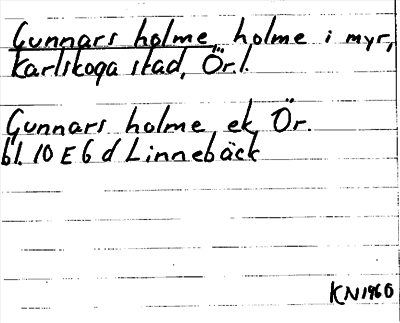 Gunnars holme, holme i myr,
Karlskoga stad, Ör.l.
Gunnars holme, ek Ör.
bl. 10 E 6 d Linnebäck
KN1960